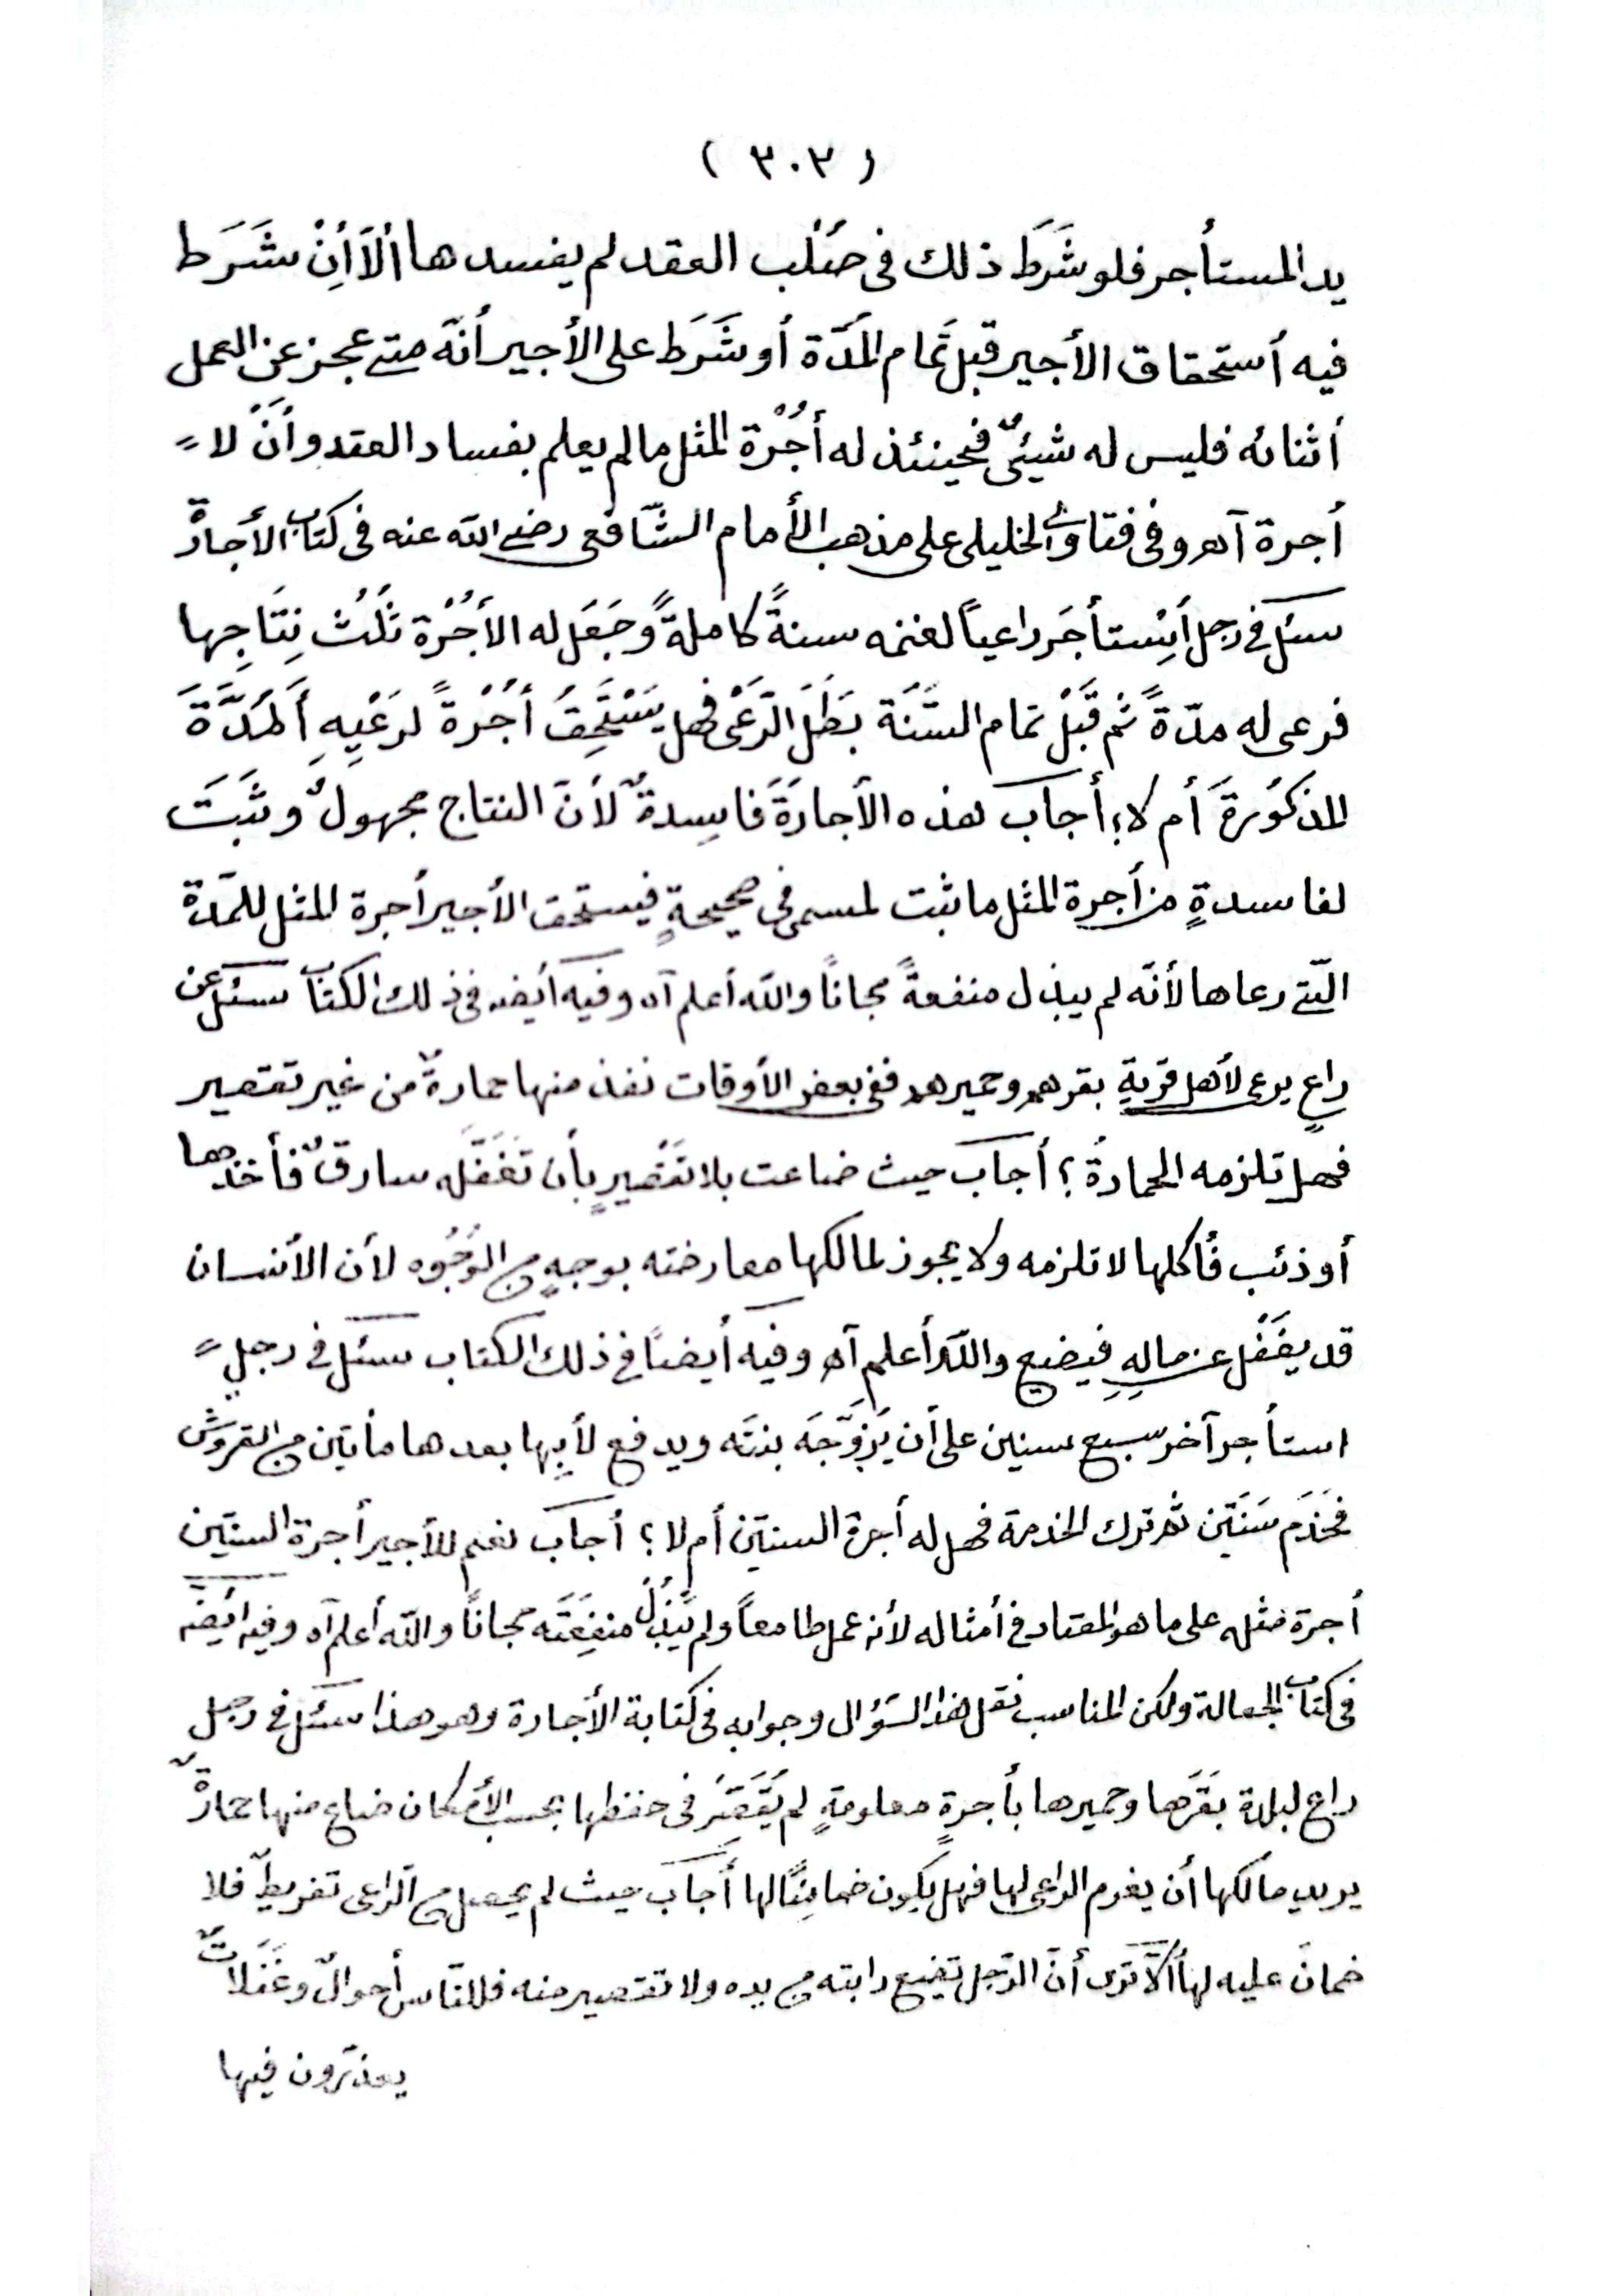 ( ٣٠٢ )
يد المستأجر فلو شَرَطَ ذلك فى صُلْب العقد لم يفسدها ألَّا أِنْ شَرَط
فيه أستحقاق الأجير قبل تَمام المُدّة أو شَرَط على الأجير أنّه متى عجز عن العمل
أثنائه فليس له شيئىٌ فحينئذ له أُجْرة المثل ما لم يعلم بفساد العقد وأنْ لا
أجرة آهـ وفى فتاوى الخليلى على مذهب الأمام الشّافعى رضى الله عنه فى كتاب الأجارة
سئل فى رجل أِسْتأجَر راعياً لغنمه سنةً كاملةً وجَعَل له الأُجْرة ثلُث نِتَاجِها
فرعى له مدّةً ثم قَبْل تمام السَّنَة بطَلَ الرَّعْى فهل يَسْتَحِقُ أُجْرةً لرَعْيِهِ أَلمُدَّةَ
المذكوُرةَ أم لا؛ أجاب هذه الأجارَةَ فاسِدةٌ لأنّ النتاج مجهولٌ وثَبَتَ
لفاسدةٍ من أجرة المثل ما ثبت لمسمى فى صحيحةٍ فيستحق الأجير أجرة المثل للمدّة
الّتى رعاها لأنّه لم يبذل منفعةً مجاناً والله أعلم آه وفيه أيضه فى ذلك الكتاب سئل عن
راعٍ يرعى لأهل قريةٍ بقرهم وحميرهم ففى بعض الأوقات نفذ منها حمارةٌ من غير تقصير
فهل تلزمه الحمارةُ؟ أجاب حيث ضاعت بلا تقصيرٍ بأن تغَفَّله سارقٌ فأخذها
أو ذئب فأكلها لا تلزمه ولا يجوز لمالكها معارضته بوجهٍ من الوُجُوه لأن الأنسان
قد يغفَل عن مالِهِ فيضيع والله أعلم آه وفيه أيضاً فى ذلك الكتاب سئل فى رجلٍ
استأجر آخر سبع سنين على أن يُزوّجَه بنتَه ويدفع لأبِيها بعدها مأتين من القروش
فَخَدَم سَنَتَين ثم ترك الخدمة فهل له أجرة السنتين أم لا؟ أجاب نعم للأجير أجرة السنتين
أجرة مثله على ما هو المعتاد فى أمثاله لأنه عمل طامعاً ولم يَبْذُلْ منفِعَتَه مجاناً والله أعلم آه وفيه ايضه
فى كتاب الجعالة ولكن المناسب نقل هذا السّؤال وجوابه فى كتابة الأجارة وهو هذا سئل فى رجل
راع لبلدة بقَرَها وحميرها بأجرةٍ معلومةٍ لم يُقَصِّرْ فى حفظها بحسب الأمكان ضاع منها حمارةٌ
يريد مالكها أن يغرم الراعى لها فهل يكون ضامِنًا لها أجاب حيث لم يحصل من الرّاعى تفريطٌ فلا
ضمانَ عليه لها ألاَ تَرى أنّ الرّجل تضيع دابته من يده ولا تقصير منه فللنّاس أحوالٌ وغَفَلاتٌ
يعذرون فيها